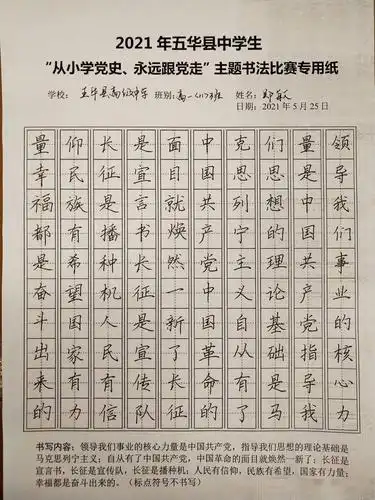 2021 年五华县中学生
“从小学党史、永远跟党走”主题书法比赛专用纸
学校: 五华县高级中学 班别: 高一 班 姓名:
日期: 2021 年 5 月 25 日
领导我们事业的核心力
量是中国共产党指导我
们思想的理论基础是马
克思列宁主义自从有了
中国共产党中国革命的
面目就焕然一新了长征
是宣言书长征是宣传队
长征是播种机人民有信
仰民族有希望国家有力
量幸福都是奋斗出来的
书写内容:领导我们事业的核心力量是中国共产党,指导我们思想的理论基础是
马克思列宁主义;自从有了中国共产党,中国革命的面目就焕然一新了;长征是
宣言书,长征是宣传队,长征是播种机;人民有信仰,民族有希望,国家有力量;
幸福都是奋斗出来的。(标点符号不书写)